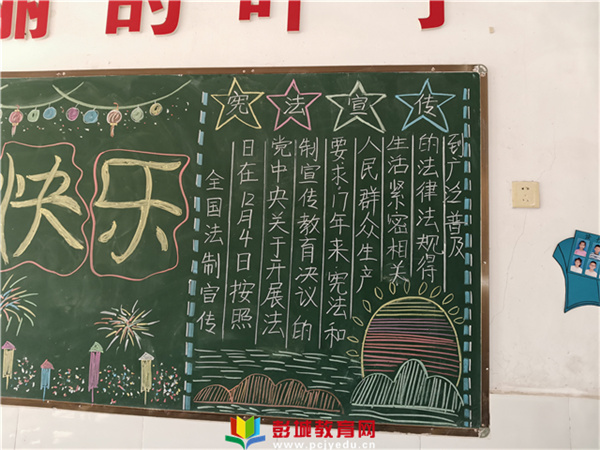 快乐
宪法宣传
全国法制宣传
日在12月4日按照
党中央关于开展法
制宣传教育决议的
要求.17年来宪法和
人民群众生产
生活紧密相关
的法律法规得
到广泛普及
彭城教育网
www.pcjyedu.cn